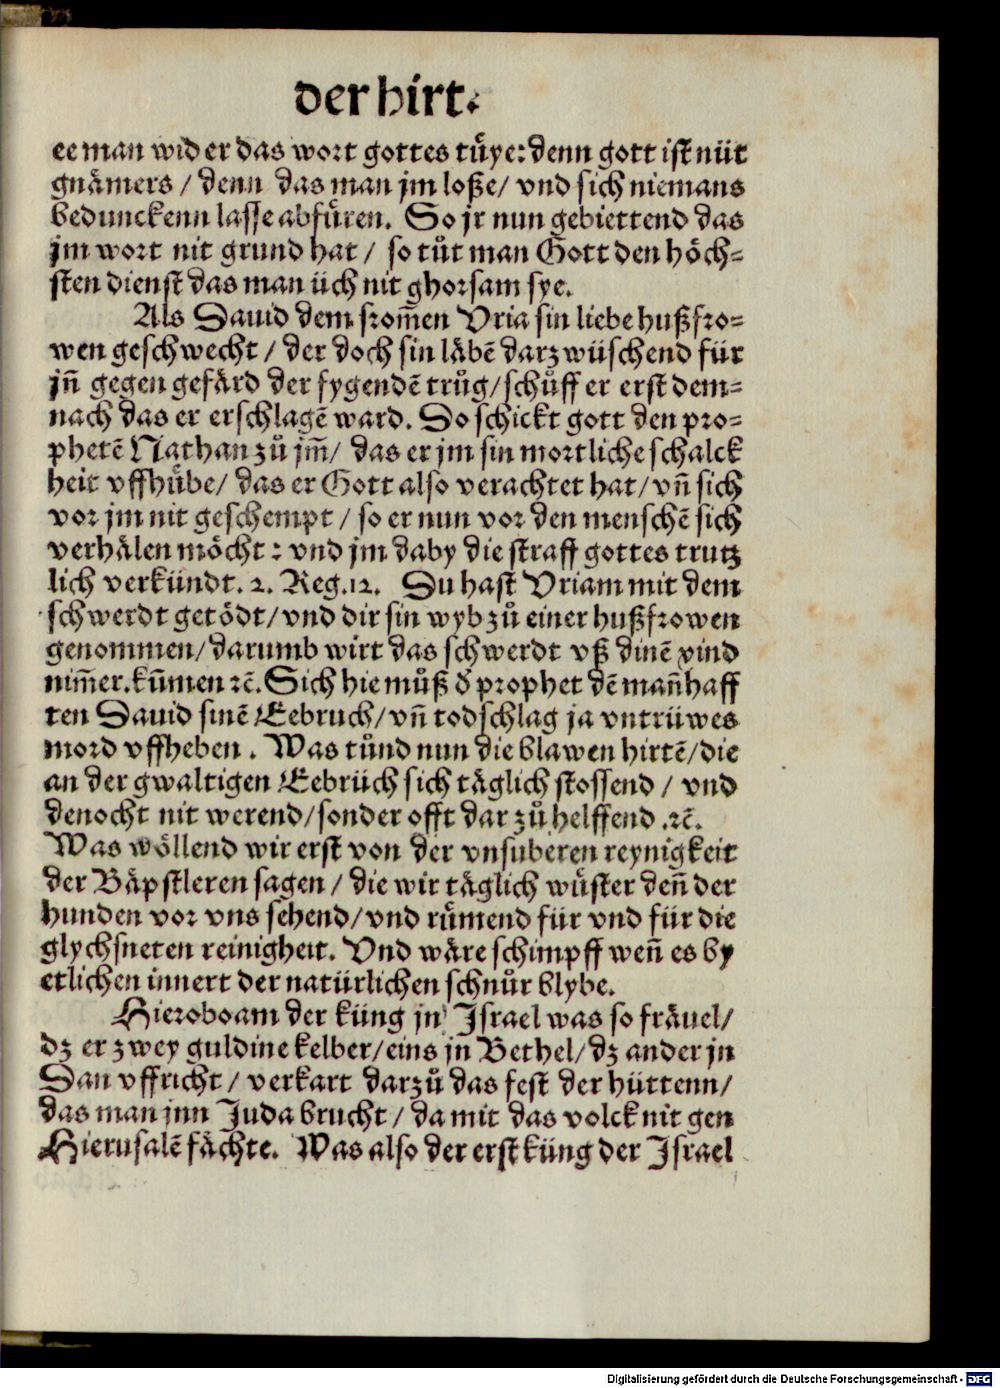 der hirt.
ee man wider das wort gottes tuͤye: denn gott ist nüt
gnämers / denn das man jm loße / vnd sich niemans
bedunckenn lasse abfuͤren. So jr nun gebiettend das
jm wort nit grund hat / so tuͦt man Gott den höch-
sten dienst das man üch nit ghorsam sye.
Als Dauid dem from̃en Vria sin liebe hußfro-
wen geschwecht / der doch sin läbẽ darzwüschend für
jnñ gegen gefärd der fygendẽ truͦg / schuͦff er erst dem-
nach das er erschlagẽ ward. Do schickt gott den pro-
phetẽ Nathan zuͦ jm̃ / das er jm sin mortliche schalck
heit vffhuͤbe / das er Gott also verachtet hat / vnñ sich
vor jm nit geschempt / so er nun vor den menschẽ sich
verhälen möcht: vnd jm daby die straff gottes trutz
lich verkündt. 2. Reg. 12. Du hast Vriam mit dem
schwerdt getödt / vnd dir sin wyb zuͦ einer hußfrowen
genommen / darumb wirt das schwerdt vß dinẽ xind
nim̃er. kum̃en ꝛc̃. Sich hie muͦß d̕ prophet dẽ mañhaff
ten Dauid sinẽ Eebruch / vnñ todschlag ja vntrüwes
mord vffheben. Was tuͦnd nun die blawen hirtẽ / die
an der gwaltigen Eebrüch sich täglich stossend / vnd
denocht nit werend / sonder offt dar zuͦ helffend .ꝛc̃.
Was wöllend wir erst von der vnsuberen reynigkeit
der Bäpstleren sagen / die wir täglich wuͤster deñ der
hunden vor vns sehend / vnd ruͤmend für vnd für die
glychsneten reinigheit. Vnd wäre schimpff weñ es by
etlichen innert der natürlichen schnuͦr blybe.
Hieroboam der küng jn Israel was so fräuel /
dz er zwey guldine kelber / eins jn Bethel / dz ander jn
Dan vffricht / verkart darzuͦ das fest der hüttenn /
das man jnn Juda brucht / da mit das volck nit gen
Hierusalẽ fächte. Was also der erst küng der Israel
Digitalisierung gefördert durch die Deutsche Forschungsgemeinschaft - DFG